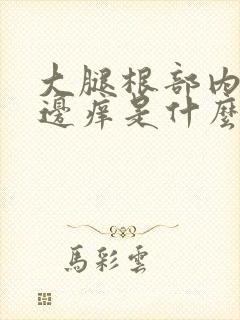 大腿根部内
邊痒是什麼
馬彩雲